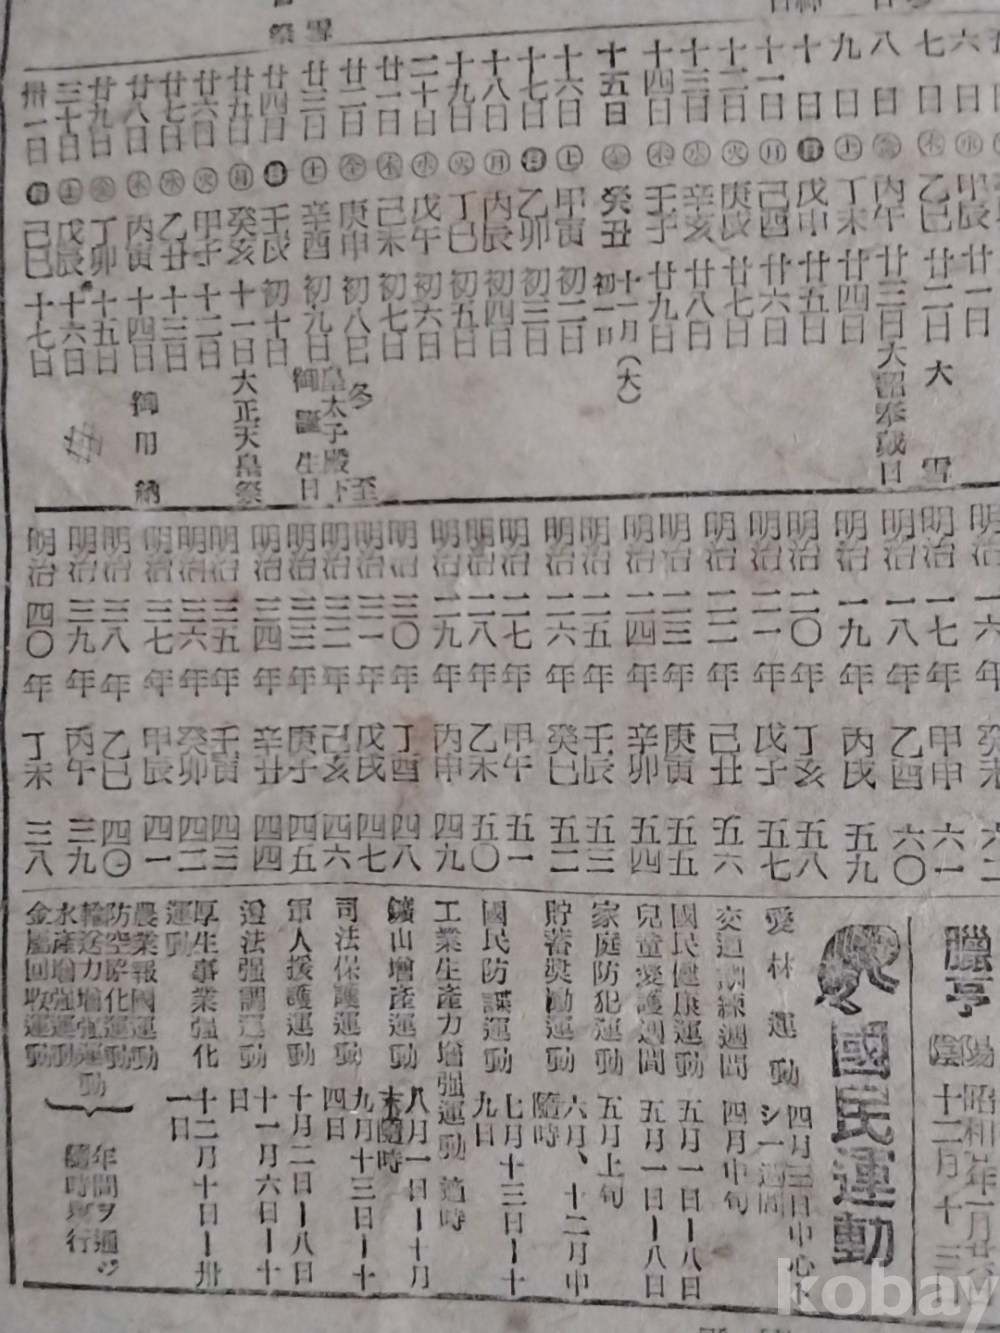 六日 水 甲辰 廿一日
七日 木 乙巳 廿二日 大雪
八日 金 丙午 廿三日 大詔奉戴日
九日 土 丁未 廿四日
十日 日 戊申 廿五日
十一日 月 己酉 廿六日
十二日 火 庚戌 廿七日
十三日 水 辛亥 廿八日
十四日 木 壬子 廿九日
十五日 金 癸丑 十一月(大)初一日
十六日 土 甲寅 初二日
十七日 日 乙卯 初三日
十八日 月 丙辰 初四日
十九日 火 丁巳 初五日
二十日 水 戊午 初六日
廿一日 木 己未 初七日
廿二日 金 庚申 初八日 冬至
廿三日 土 辛酉 初九日 皇太子殿下御誕生日
廿四日 日 壬戌 初十日
廿五日 月 癸亥 十一日 大正天皇祭
廿六日 火 甲子 十二日
廿七日 水 乙丑 十三日
廿八日 木 丙寅 十四日 御用納
廿九日 金 丁卯 十五日
三十日 土 戊辰 十六日
卅一日 日 己巳 十七日
明治一六 癸未 六二
明治一七年 甲申 六一
明治一八年 乙酉 六〇
明治一九年 丙戌 五九
明治二〇年 丁亥 五八
明治二一年 戊子 五七
明治二二年 己丑 五六
明治二三年 庚寅 五五
明治二四年 辛卯 五四
明治二五年 壬辰 五三
明治二六年 癸巳 五二
明治二七年 甲午 五一
明治二八年 乙未 五〇
明治二九年 丙申 四九
明治三〇年 丁酉 四八
明治三一年 戊戌 四七
明治三二年 己亥 四六
明治三三年 庚子 四五
明治三四年 辛丑 四四
明治三五年 壬寅 四三
明治三六年 癸卯 四二
明治三七年 甲辰 四一
明治三八年 乙巳 四〇
明治三九年 丙午 三九
明治四〇年 丁未 三八
臘亨
陽 昭和 年一月廿六
陰 十二月十三
國民運動
愛林運動 四月三日中心トシ一週間
交通訓練週間 四月中旬
國民健康運動 五月一日ー八日
兒童愛護週間 五月一日ー八日
家庭防犯運動 五月上旬
貯蓄奨勵運動 六月、十二月中隨時
國民防諜運動 七月十三日ー十九日
工業生產力增强運動 適時
鑛山增產運動 八月一日ー十月末隨時
司法保護運動 九月十三日ー十四日
軍人援護運動 十月二日ー八日
遵法强調運動 十一月六日ー十日
厚生事業强化運動 十二月十日ー卅一日
農業報國運動
防空防化運動
輸送力增强運動
水產增强運動
金屬回收運動
年間ヲ通ジ隨時実行
kobay